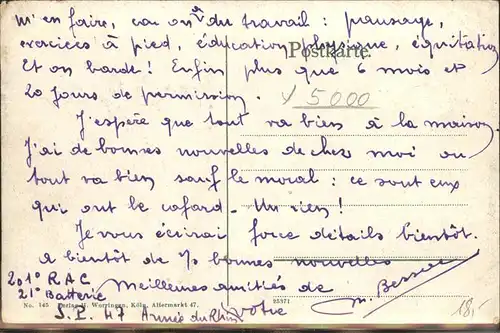 m'en faire, car on a du travail : pansage,
exercices à pied, éducation physique, équitation
Postkarte.
Et on barde! Enfin plus que 6 mois et
20 jours de permission.
5000
J'espère que tout va bien à la maison
J'ai de bonnes nouvelles de chez moi ou
tout va bien sauf le moral : ce sont eux
qui ont le cafard. Un rien!
Je vous écrirai force détails bientôt.
A bientôt de bonnes nouvelles
201e R.A.C. Meilleures amitiés de
21e Batterie
No. 145 Verlag H. Worringen, Köln, Altermarkt 47. 25571
S.P. 47 Armée du Rhin votre M.
18,-